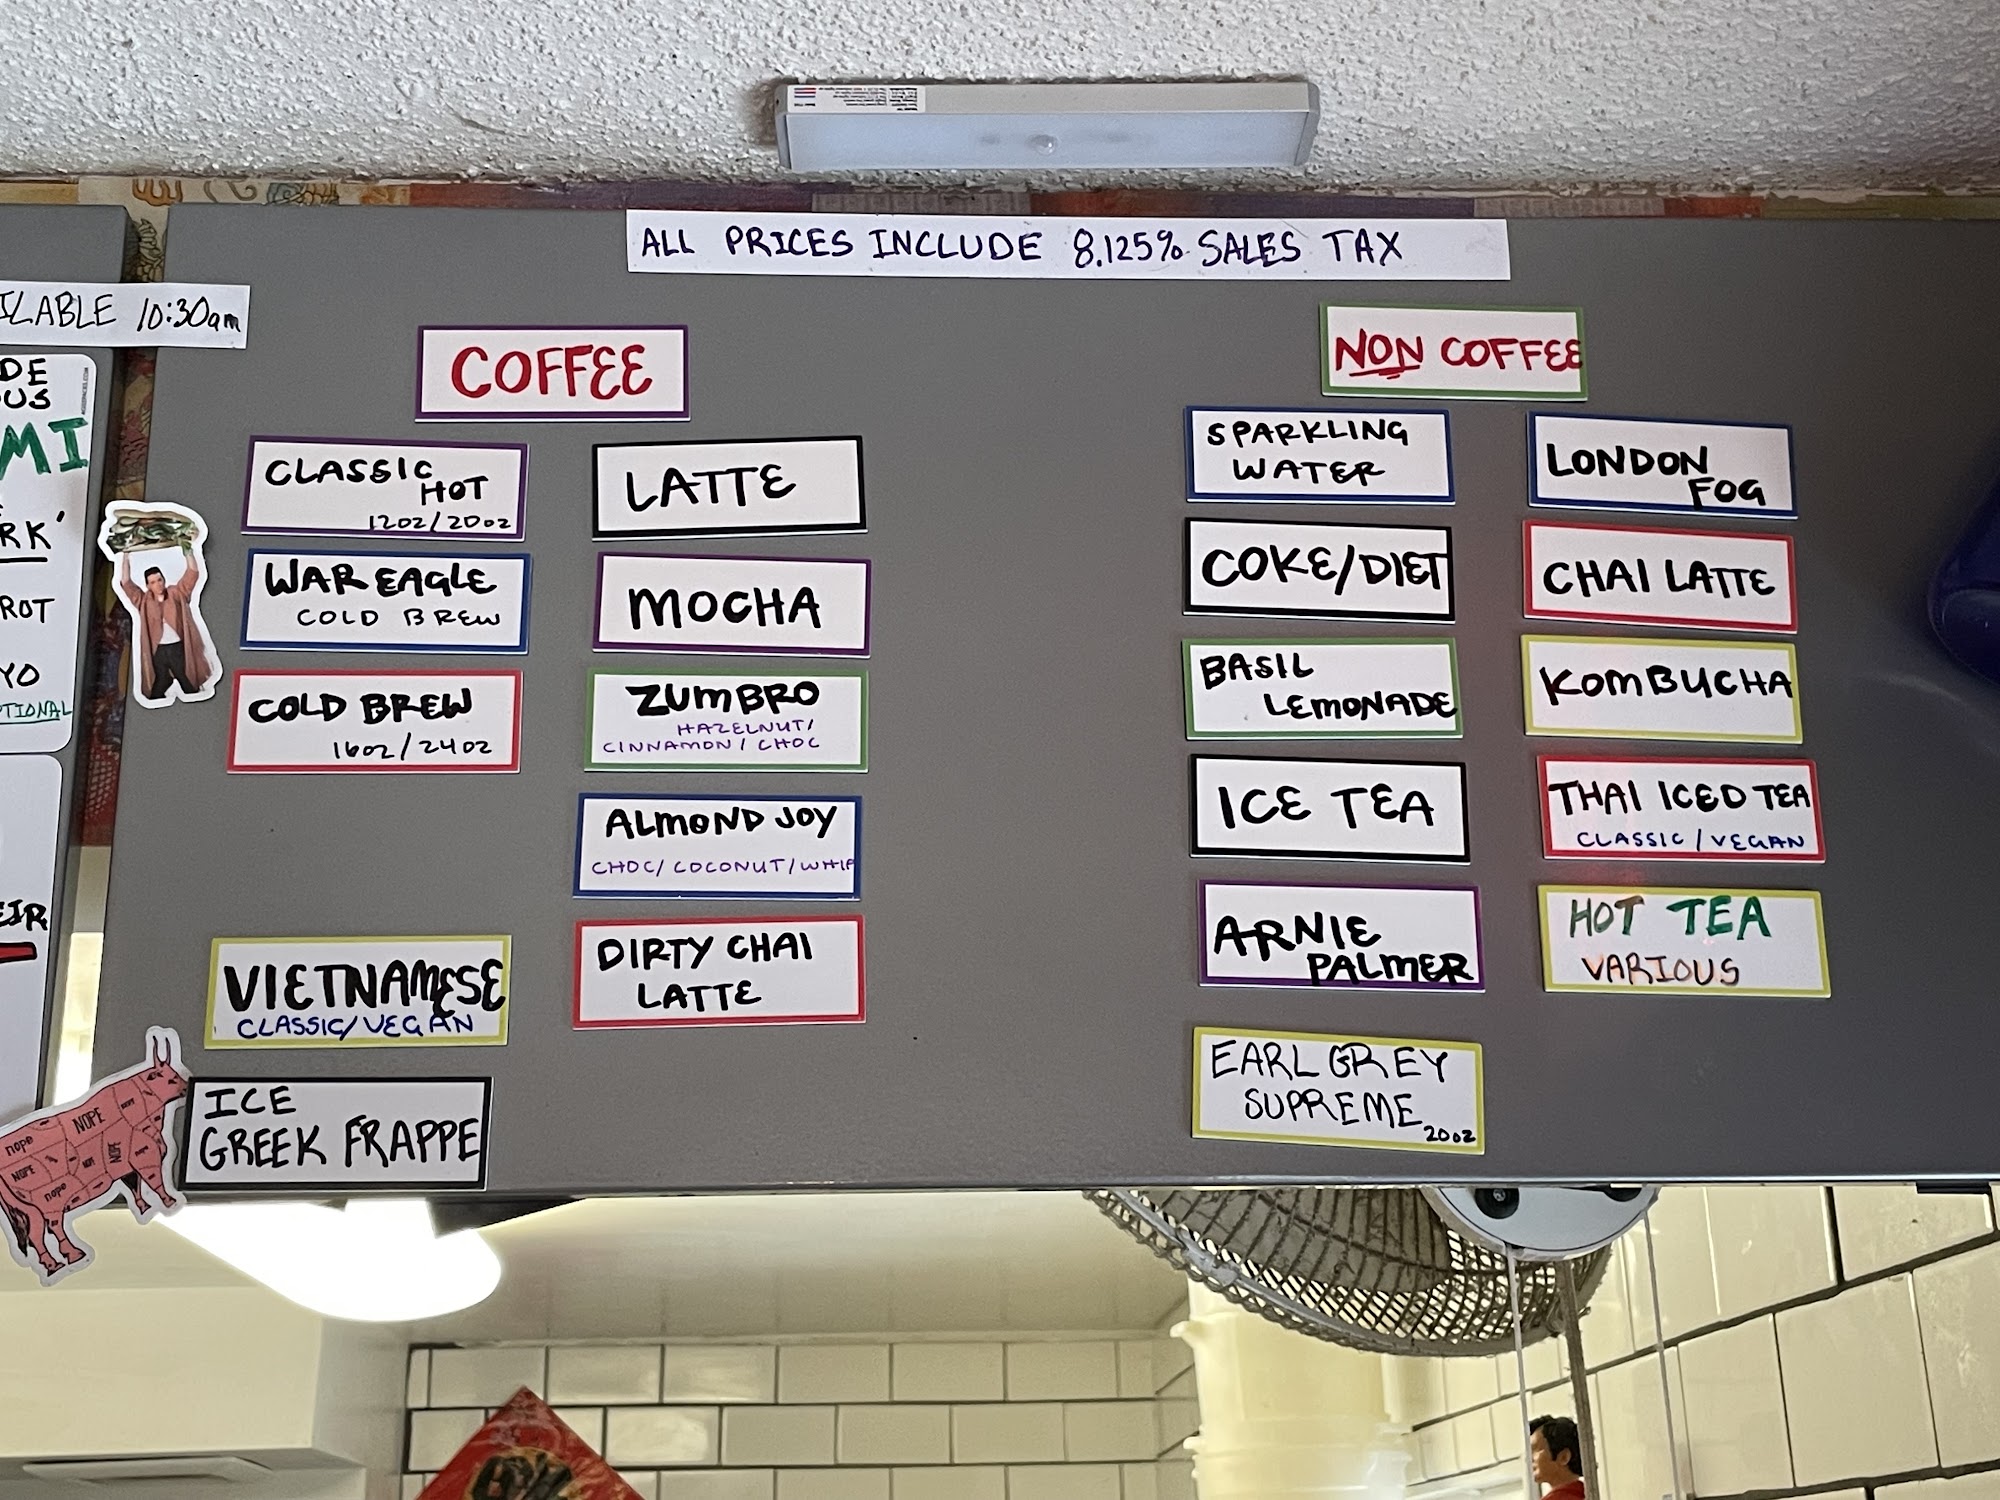 ALL PRICES INCLUDE 8.125% SALES TAX
ILABLE 10:30am
DE
OUS
MI
RK'
ROT
YO
TIONAL
EIR
COFFEE
CLASSIC
HOT
12oz/20oz
WAR EAGLE
COLD BREW
COLD BREW
16oz/24oz
VIETNAMESE
CLASSIC/VEGAN
ICE
GREEK FRAPPE
LATTE
MOCHA
ZUMBRO
HAZELNUT/
CINNAMON/CHOC
ALMOND JOY
CHOC/COCONUT/WHIP
DIRTY CHAI
LATTE
NON COFFEE
SPARKLING
WATER
COKE/DIET
BASIL
LEMONADE
ICE TEA
ARNIE
PALMER
EARL GREY
SUPREME
20oz
LONDON
FOG
CHAI LATTE
KOMBUCHA
THAI ICED TEA
CLASSIC/VEGAN
HOT TEA
VARIOUS
nope
NOPE
NOPE
NOPE
nope